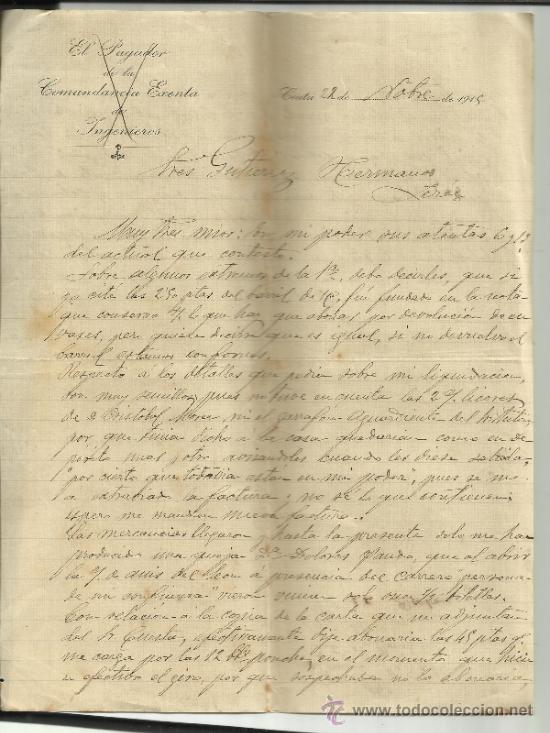 El Pagador
de la
Comandancia Exenta
de
Ingenieros
Ceuta 22 de Nobre de 1915
Sres Gutierrez Hermanos
Jerez
Muy Sres mios: En mi poder sus atentas 6 y 13
del actual que contesto.
Sobre algunos extremos de la 1ª, debo decirles, que si
yo cité las 250 ptas del barril de fué fundado en la nota
que conservo que hay que abonar por devolucion de en
vases, pero quiere decir que es igual, si no devuelvo el
barril estamos conformes.
Respecto a los detalles que pedia sobre mi liquidacion,
son muy sencillos, pues no tuve en cuenta las 2 c/ licores
de D. Cristobal ni el garrafon Aguardiente del
por que tenia dicho a la casa quedaria como en de
posito mas otro avisandoles cuando les diese salida,
"por cierto que todabia estan en mi poder", pues se me
a extrabiado la factura y no se lo que contienen,
espero me manden nueva factura.
Las mercancias llegaron y hasta la presente solo me han
producido una queja Dª Dolores que al abrir
la c/ de anis del a presencia del carrero "persona
de mi confianza" vieron venian solo once botellas.
Con relacion a la copia de la carta que me adjuntan
del Sr efectivamente dije abonaria las 45 ptas q.
me carga por las 12 Bs ponche, en el momento que hicie
se efectivo el giro, por que sospechaba no lo abonaria,
www.todocoleccion.net